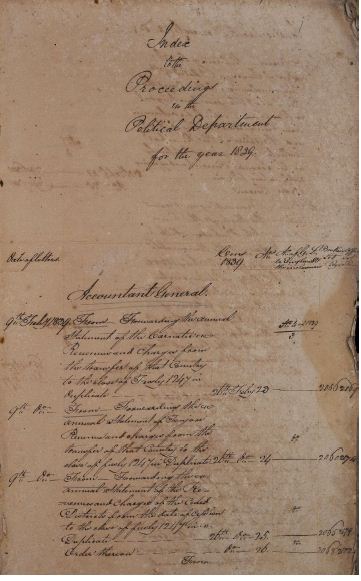 Index
to the
Proceedings
in the
Political Department
for the year 1839.
Date of letters. Cons 1839
Accountant General.
9th July 1839. From Forwarding the annual
Statement of the Carnatic
Revenue and Charges from
the transfer of that Country
to the close of Fusly 1247 in
Duplicate 26th July 23
9th Do From Forwarding the
annual Statement of Tanjore
Revenue and charges from the
transfer of that Country to the
close of fusly 1247 in Duplicate 26th Do 24
9th Do From Forwarding the
annual statement of the Re-
venue and Charges of the Ceded
Districts from the date of cession
to the close of fusly 1247 in
Duplicate 26th Do 25
Order thereon Do 26
From